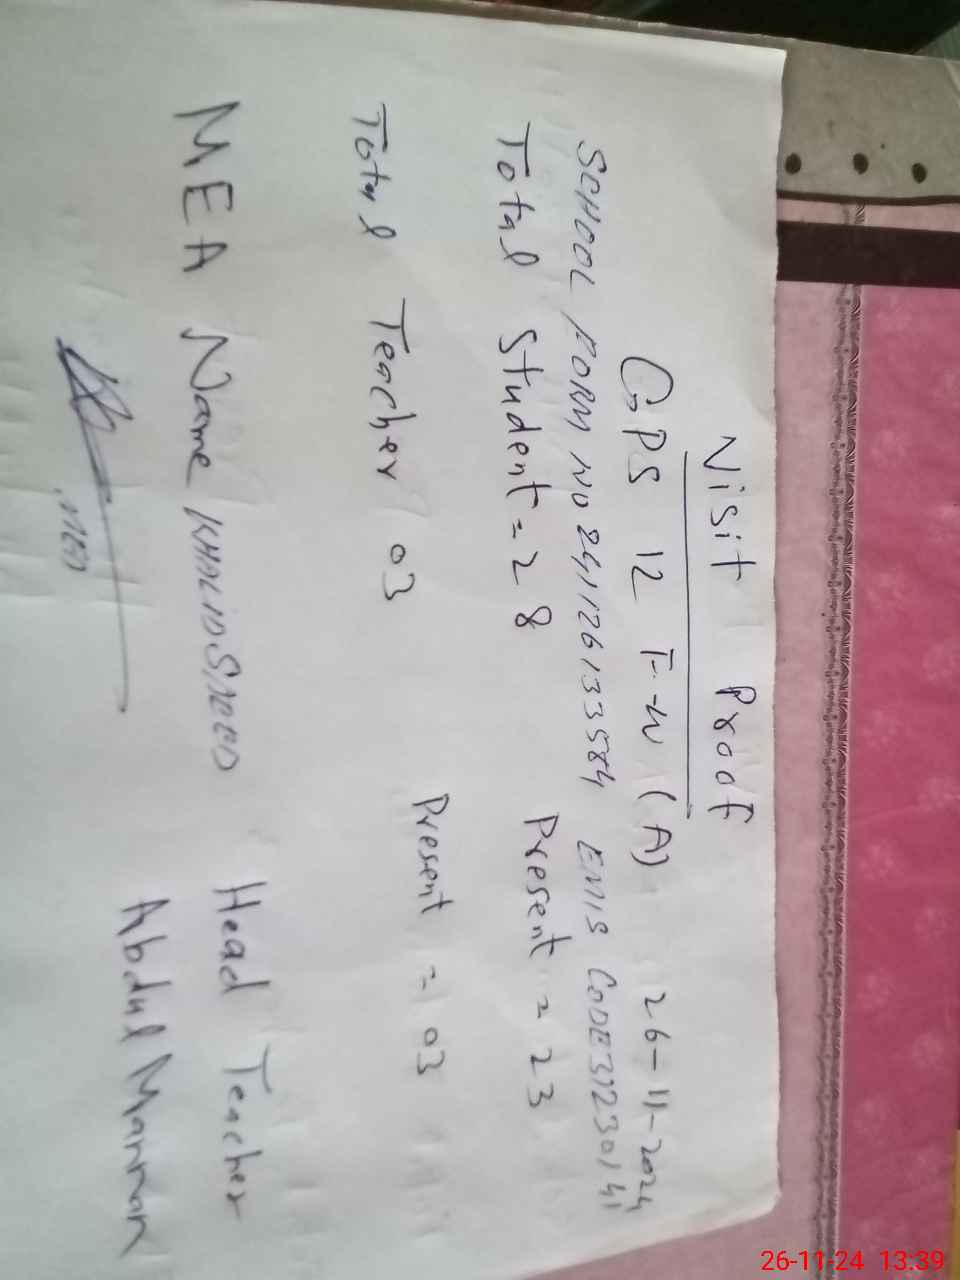 Visit Proof
GPS 12 F-W (A) 26-11-2024
SCHOOL FORM NO 241126133584 EMIS CODE 31230141
Total Student = 28 Present = 23
Total Teacher 03 Present = 03
MEA Name KHALID SAEED Head Teacher
Abdul Mannan
MEA
26-11-24 13:39